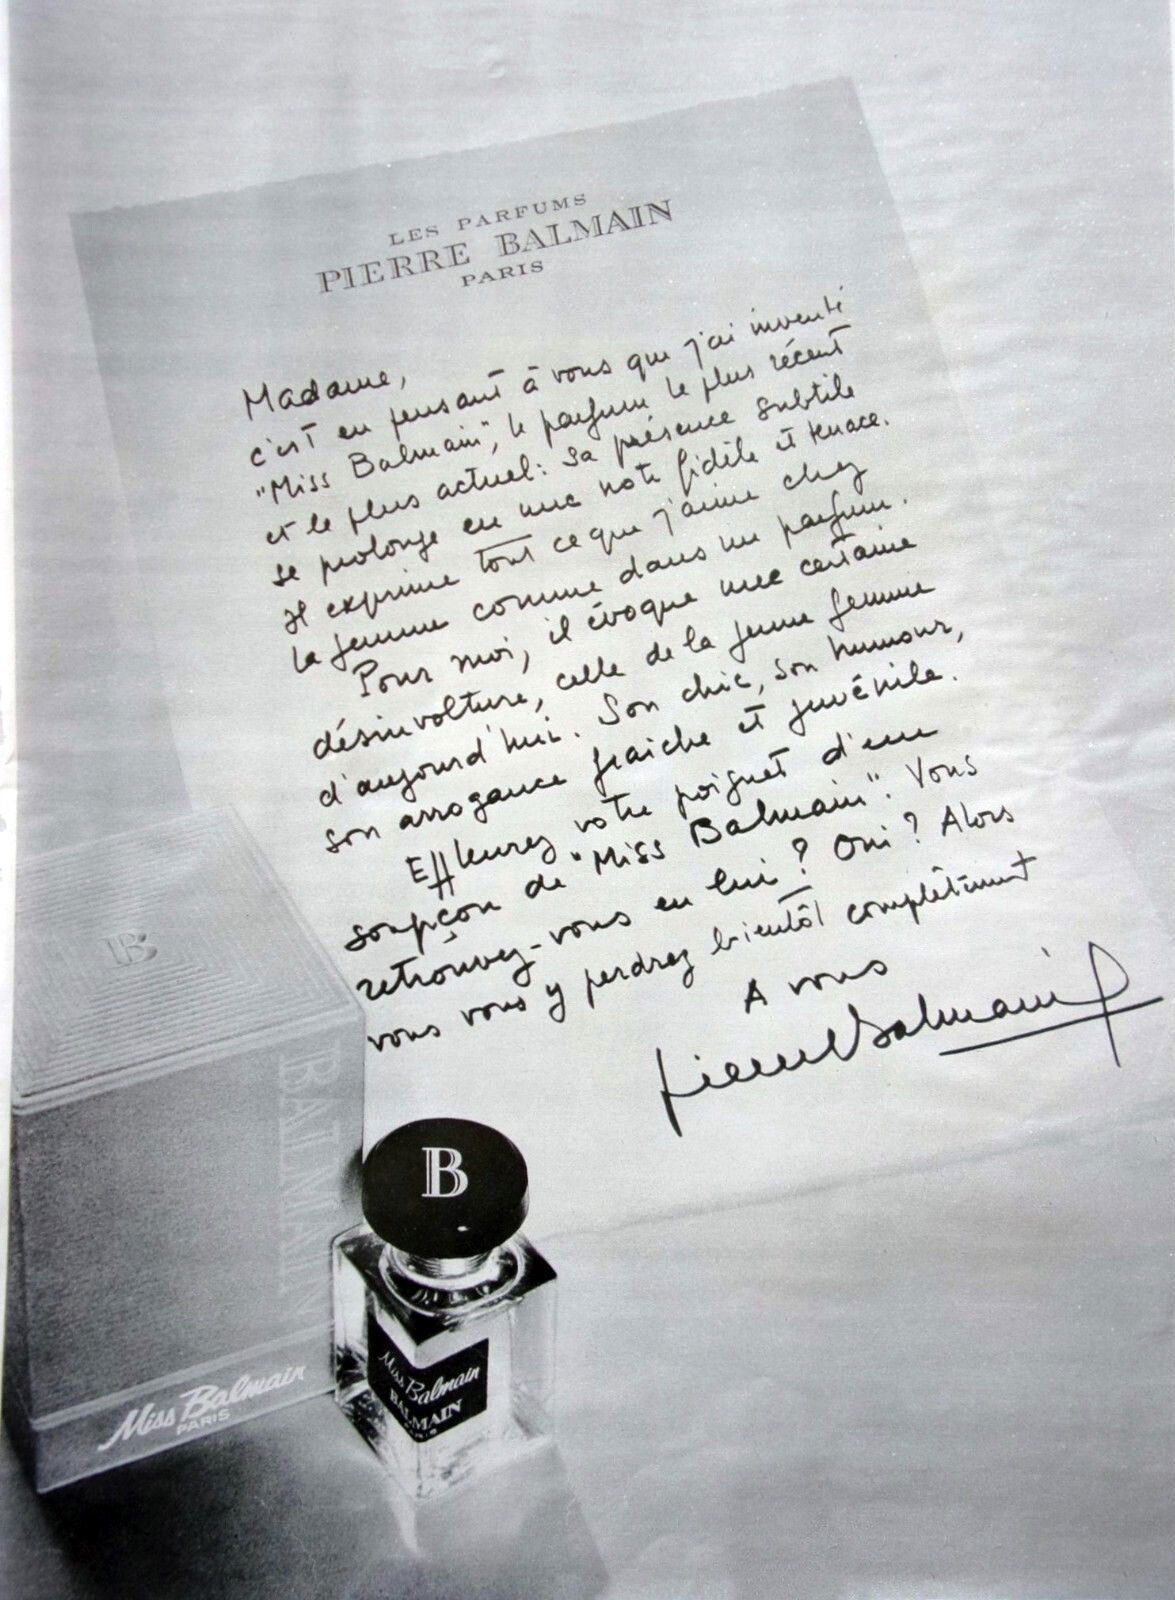 LES PARFUMS
PIERRE BALMAIN
PARIS
Madame,
c'est en pensant à vous que j'ai inventé
"Miss Balmain", le parfum le plus récent
et le plus actuel: sa présence subtile
se prolonge en une note fidèle et tenace.
Il exprime tout ce que j'aime chez
la femme comme dans un parfum.
Pour moi, il évoque une certaine
désinvolture, celle de la jeune femme
d'aujourd'hui. Son chic, son humour,
son arrogance fraiche et juvénile.
Effleurez votre poignet d'un
soupçon de "Miss Balmain". Vous
retrouvez-vous en lui? Oui? Alors
vous vous y perdrez bientôt complètement
A vous
Pierre Balmain
B
BALMAIN
Miss Balmain
PARIS
B
Miss Balmain
BALMAIN
PARIS